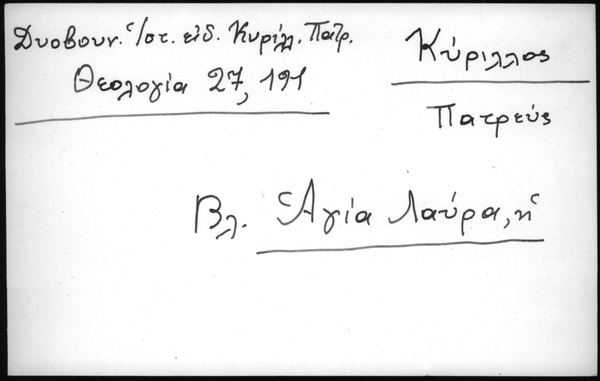 Δυοβουν. Ἱστ. εἰδ. Κυρίλλ. Πατρ.
Θεολογία 27, 191
Κύριλλος
Πατρεύς
Βλ. Ἁγία Λαύρα, ἡ